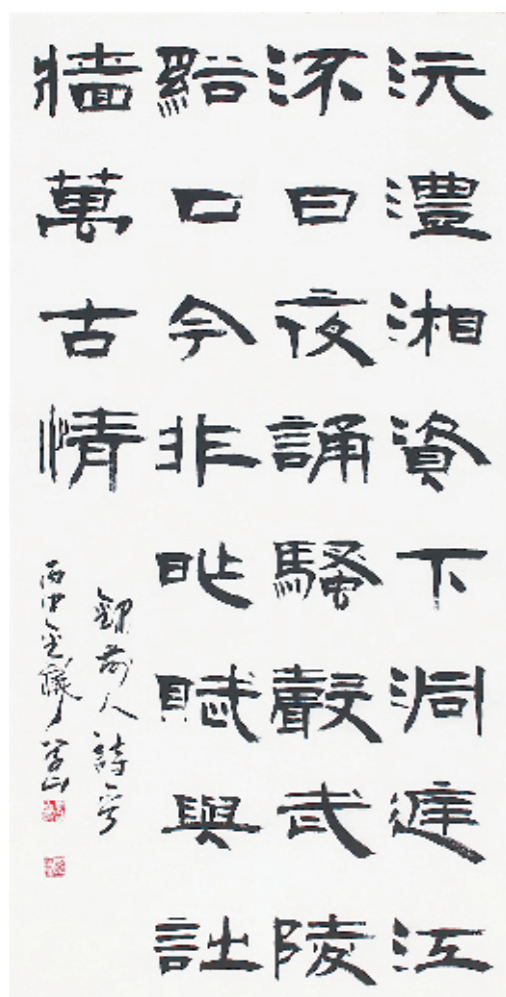 沅澧湘資下洞庭江
流日夜誦騷聲武陵
谿口今非昨賦與詩
牆萬古情
録前人詩句
丙申金陵山